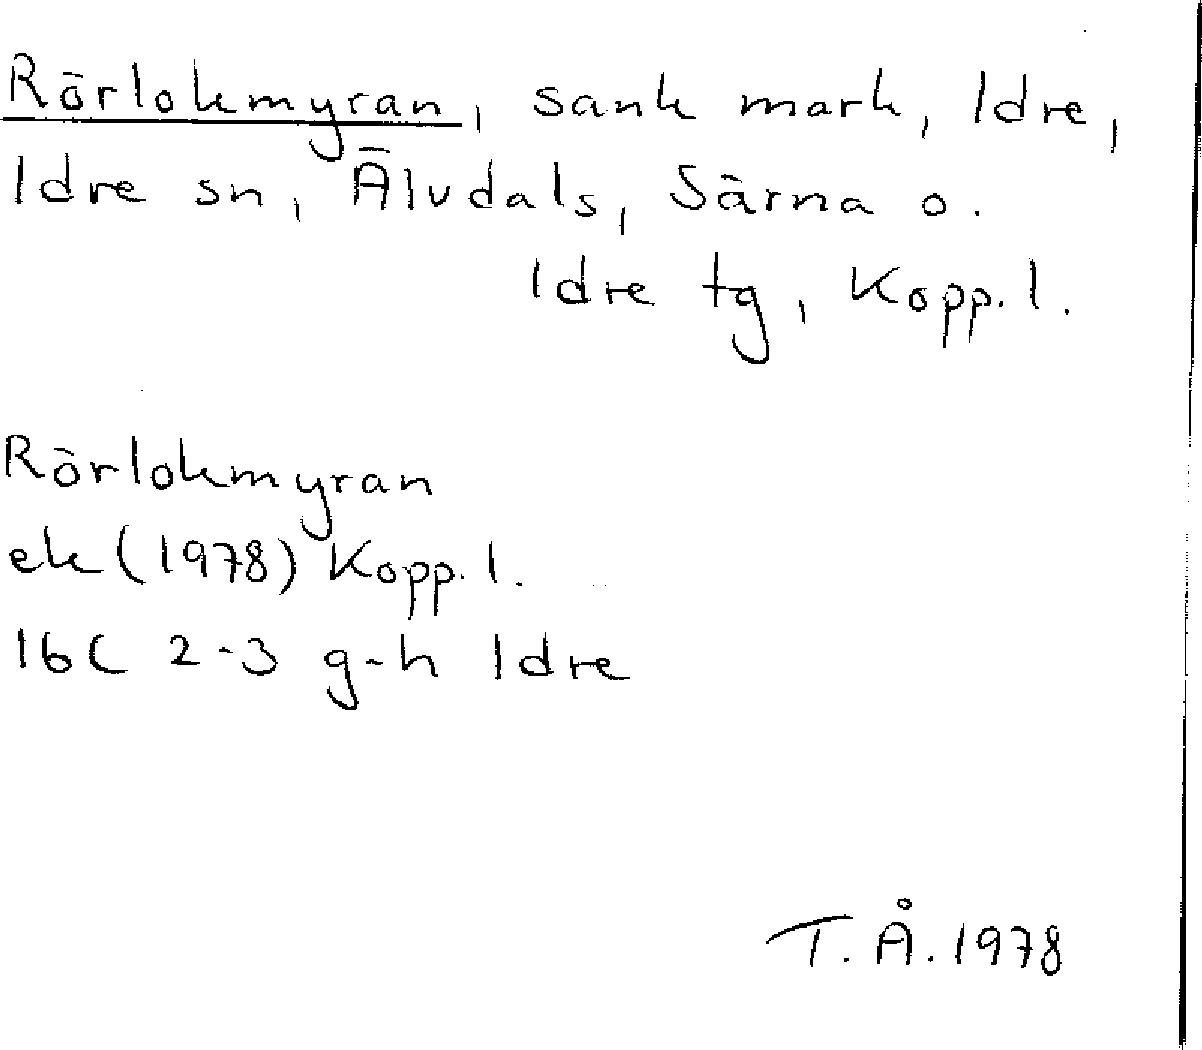 Rörlokmyran, sank mark, Idre,
Idre sn, Älvdals, Särna o.
Idre tg, Kopp. l.
Rörlokmyran
ek (1978) Kopp. l.
16C 2-3 g-h Idre
T. Å. 1978